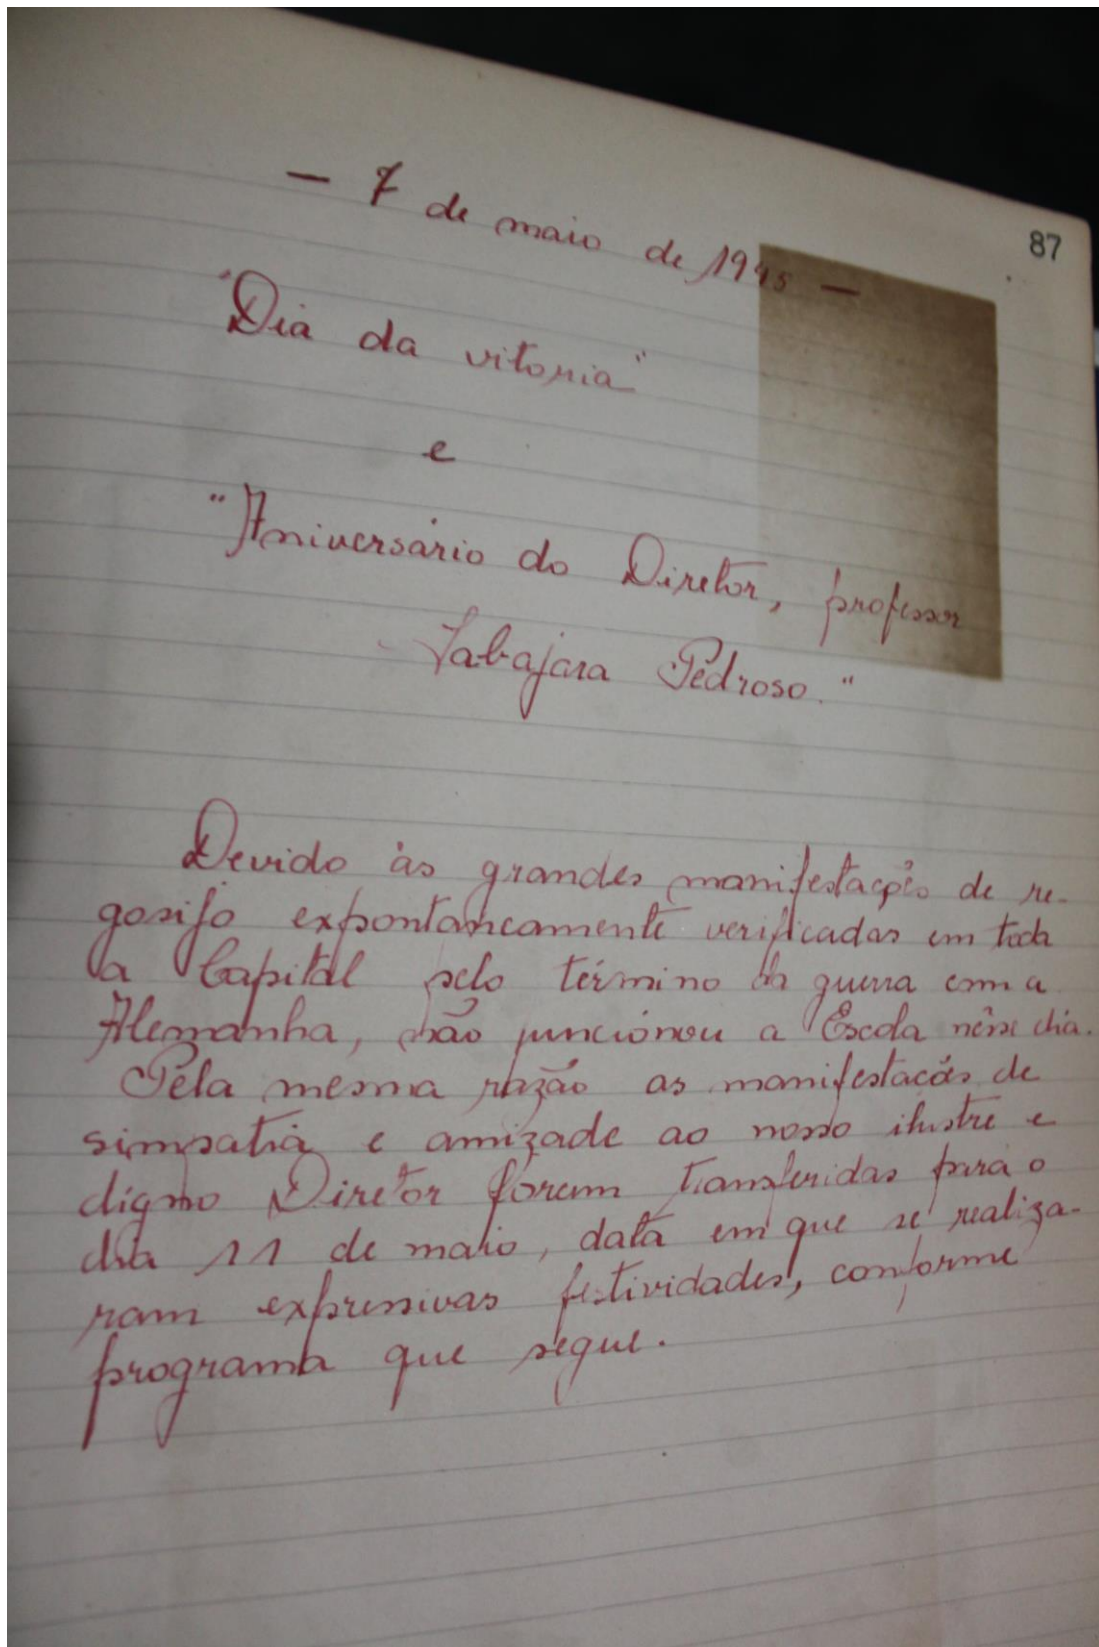 87
— 7 de maio de 1945 —
"Dia da vitoria"
e
"Aniversário do Diretor, professor
Tabajara Pedroso."
Devido às grandes manifestações de re-
gosijo expontaneamente verificadas em toda
a Capital pelo término da guerra com a
Alemanha, não funcionou a Escola nêsse dia.
Pela mesma razão as manifestacões de
simpatia e amizade ao nosso ilustre e
digno Diretor foram transferidas para o
dia 11 de maio, data em que se realiza-
ram expressivas festividades, conforme
programa que segue.